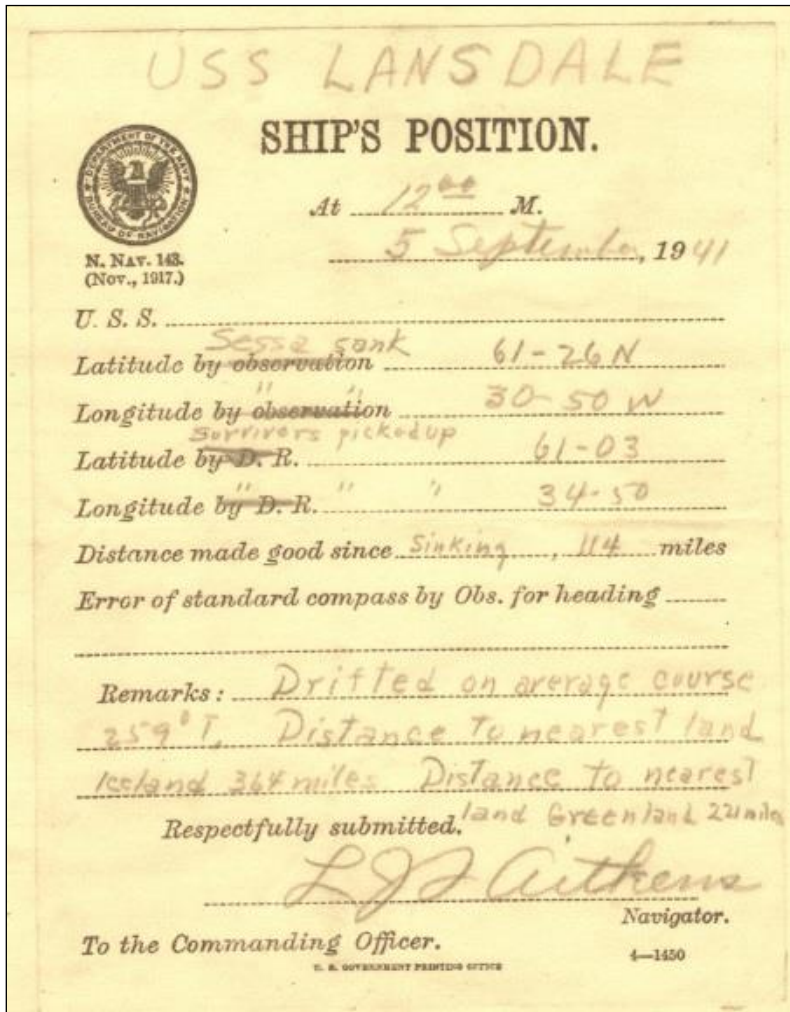 USS LANSDALE
SHIP'S POSITION.
DEPARTMENT OF THE NAVY
BUREAU OF NAVIGATION
At 12 00 M.
5 September, 1941
N. NAV. 143.
(Nov., 1917.)
U. S. S.
Sessa sank
Latitude by observation 61-26 N
" "
Longitude by observation 30-50 W
Survivers picked up
Latitude by D. R. 61-03
" " "
Longitude by D. R. 34-50
Distance made good since Sinking, 114 miles
Error of standard compass by Obs. for heading
Remarks: Drifted on average course
259° T, Distance To nearest land
Iceland 364 miles Distance to nearest
land Greenland 221 miles
Respectfully submitted.
L J J Aitkens
Navigator.
To the Commanding Officer.
4—1450
U. S. GOVERNMENT PRINTING OFFICE